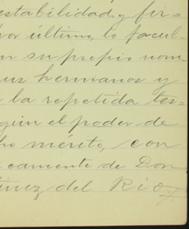 estabilidad, y fir-
por último, lo facul-
en su propio nom-
sus hermanos y
la repetida tes-
según el poder de
ho mérito, con
camente de Don
ínez del Rio